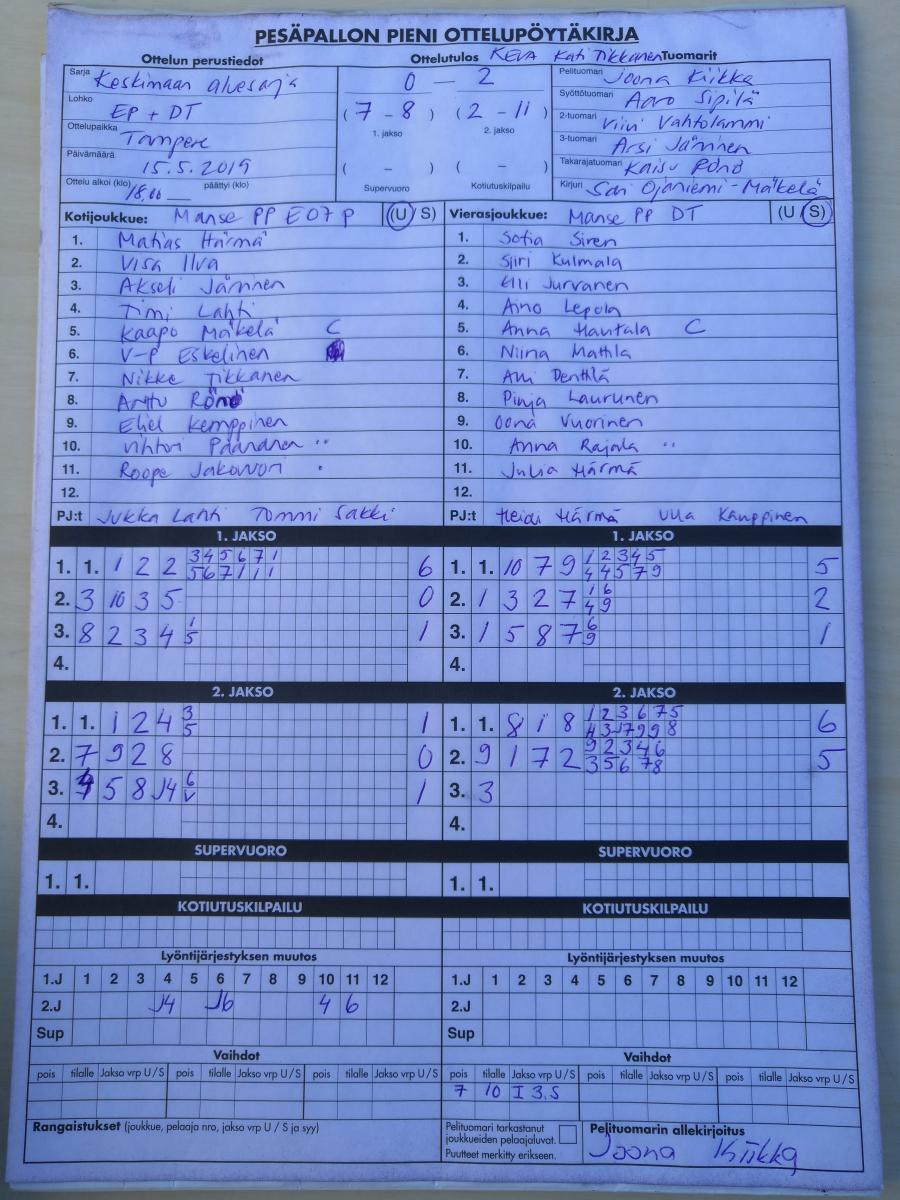 PESÄPALLON PIENI OTTELUPÖYTÄKIRJA
Ottelun perustiedot
Sarja Keskimaan aluesarja
Lohko EP + DT
Ottelupaikka Tampere
Päivämäärä 15.5.2019
Ottelu alkoi (klo) 18.00 päättyi (klo)
Ottelutulos KEVA Kati Tikkanen
0 - 2
(7 - 8) (2 - 11)
1. jakso 2. jakso
( - ) ( - )
Supervuoro Kotiutuskilpailu
Tuomarit
Pelituomari Joona Kiikka
Syöttötuomari Aaro Sipilä
2-tuomari Viivi Vahtolammi
3-tuomari Arsi Jäminen
Takarajatuomari Kaisu Rönö
Kirjuri Sari Ojaniemi-Mäkelä
Kotijoukkue: Manse PP E07 P (U / S)
1. Matias Härmä
2. Visa Ilva
3. Akseli Jäminen
4. Timi Lahti
5. Kaapo Mäkelä C
6. V-P Eskelinen
7. Nikke Tikkanen
8. Anttu Rönö
9. Eliel Kemppinen
10. Vihtori Paananen
11. Roope Jakowori
12.
PJ:t Jukka Lahti Tommi Sakki
Vierasjoukkue: Manse PP DT (U / S)
1. Sofia Siren
2. Siiri Kulmala
3. Elli Jurvanen
4. Aino Lepola
5. Anna Hautala C
6. Niina Mattila
7. Anni Penttilä
8. Pinja Laurunen
9. Oona Vuorinen
10. Anna Rajala
11. Julia Härmä
12.
PJ:t Heidi Härmä Ulla Kauppinen
1. JAKSO
1. 1. 1 2 2 3 4 5 6 7 1 6
5 6 7 1 1 1
2. 3 10 3 5 0
3. 8 2 3 4 1 1
5
4.
1. JAKSO
1. 1. 10 7 9 1 2 3 4 5 5
4 4 5 7 9
2. 1 3 2 7 1 6 2
4 9
3. 1 5 8 7 6 1
9
4.
2. JAKSO
1. 1. 1 2 4 3 1
5
2. 7 9 2 8 0
3. 5 8 J4 6 1
V
4.
2. JAKSO
1. 1. 8 1 8 1 2 3 6 7 5 6
2. 9 1 7 2 9 2 3 4 6 5
3 5 6 7 8
3. 3
4.
SUPERVUORO
1. 1.
SUPERVUORO
1. 1.
KOTIUTUSKILPAILU
KOTIUTUSKILPAILU
Lyöntijärjestyksen muutos
1.J 1 2 3 4 5 6 7 8 9 10 11 12
2.J J4 J6 4 6
Sup
Lyöntijärjestyksen muutos
1.J 1 2 3 4 5 6 7 8 9 10 11 12
2.J
Sup
Vaihdot
pois tilalle Jakso vrp U / S pois tilalle Jakso vrp U / S pois tilalle Jakso vrp U / S
Vaihdot
pois tilalle Jakso vrp U / S pois tilalle Jakso vrp U / S pois tilalle Jakso vrp U / S
7 10 I 3.S
Rangaistukset (joukkue, pelaaja nro, jakso vrp U / S ja syy)
Pelituomari tarkastanut
joukkueiden pelaajaluvat.
Puutteet merkitty erikseen.
Pelituomarin allekirjoitus
Joona Kiikka